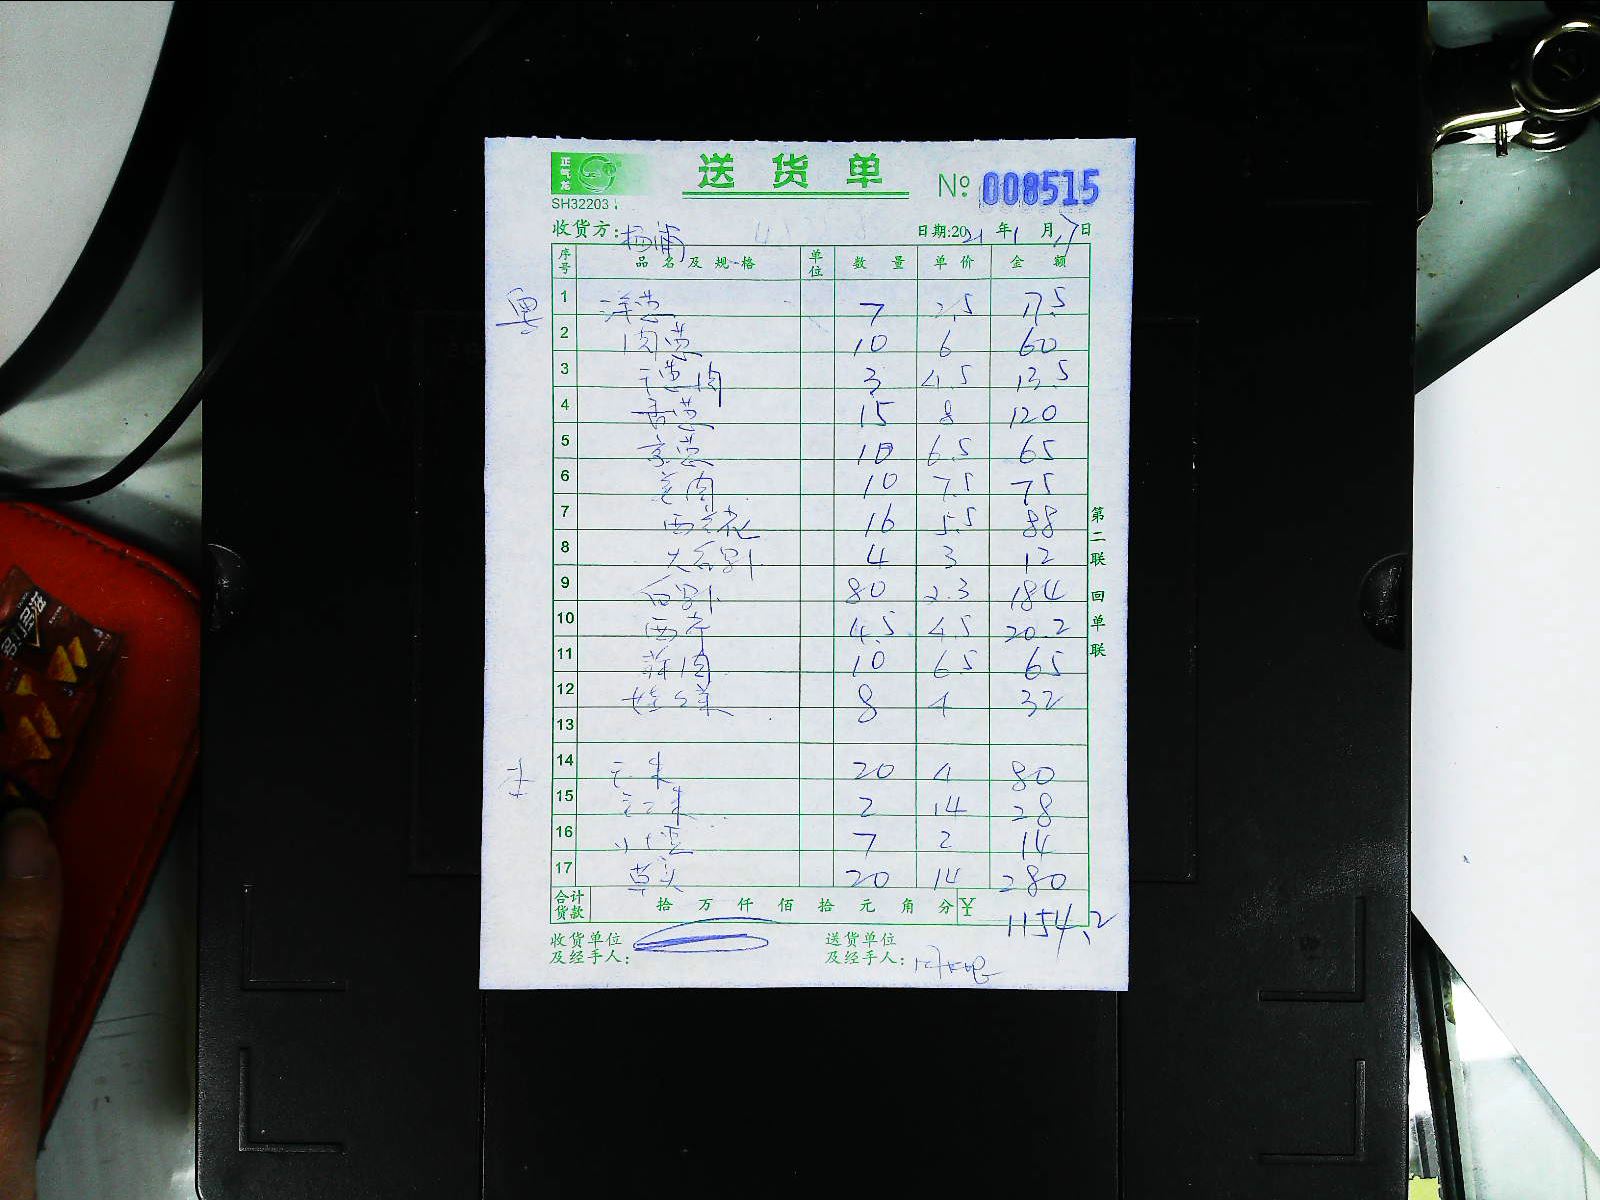 正气龙
送货单
№ 008515
SH32203
收货方: 杨浦
日期:2021年1月17日
序号 品名及规格 单位 数量 单价 金额
粤
1 洋葱 7 2.5 17.5
2 肉葱 10 6 60
3 干葱肉 3 4.5 13.5
4 香葱 15 8 120
5 京葱 10 6.5 65
6 姜肉 10 7.5 75
7 西兰花 16 5.5 88
8 4 3 12
9 80 2.3 184
10 西芹 4.5 4.5 20.2
11 蒜肉 10 6.5 65
12 娃娃菜 8 4 32
13
14 20 4 80
15 2 14 28
16 7 2 14
17 草头 20 14 280
合计货款 拾 万 仟 佰 拾 元 角 分 ¥ 1154.2
收货单位及经手人:
送货单位及经手人:
第二联 回单联